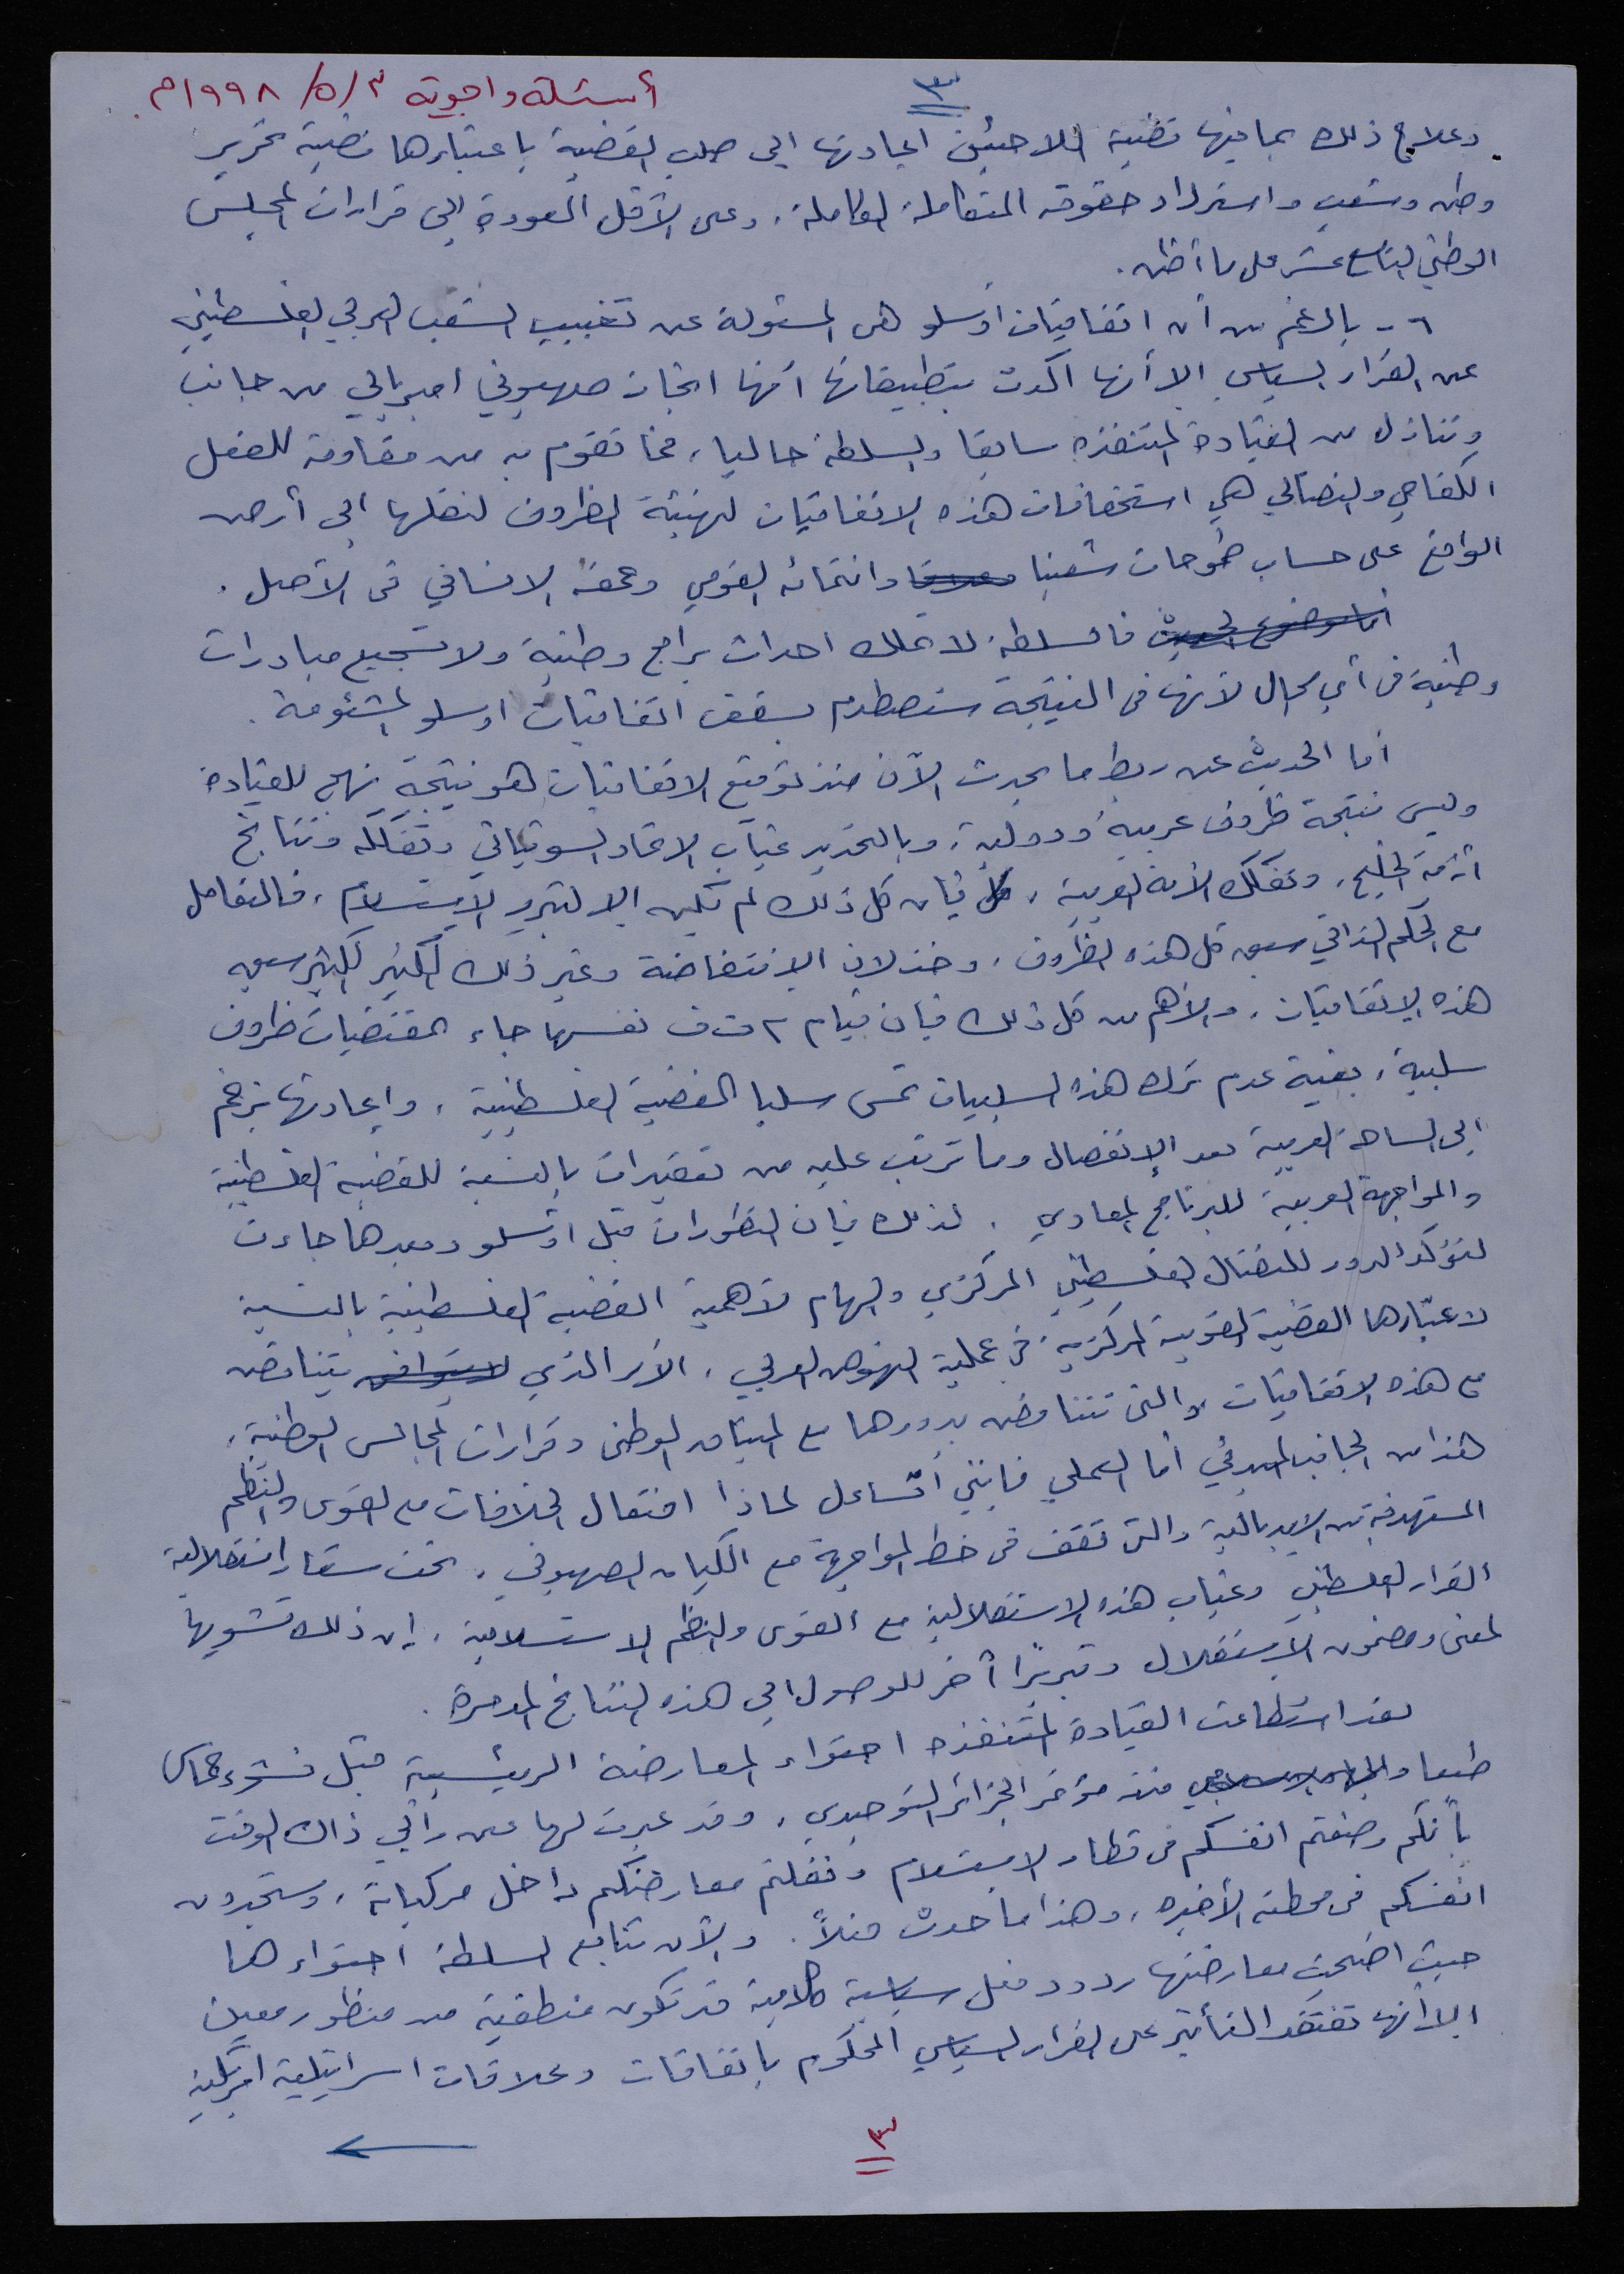 ٣
أسئلة واجوبة ٣/٥/١٩٩٨م.
وعلاج ذلك بما فيها قضية اللاجئين اعادتها الى صلب القضية باعتبارها قضية تحرير
وطن وشعب واسترداد حقوقه المتكاملة الكاملة، وعلى الأقل العودة إلى قرارات المجلس
الوطني التاسع عشر على ما أظن.
٦- بالرغم من أن اتفاقيات اوسلو هي المسئولة عن تغييب الشعب العربي الفلسطيني
عن القرار السياسي إلا أنها اكدت بتطبيقاتها أنها انجاز صهيوني امبريالي من جانب
وتنازل من القيادة المتنفذه سابقا والسلطة حاليا، فما تقوم به من مقاومة للعمل
الكفاحي والنضالي هي استحقاقات هذه الاتفاقيات لتهيئة الظروف لنقلها الى أرض
الواقع على حساب طموحات شعبنا وانتمائه القومي وعمقه الانساني في الأصل.
فالسلطة لا تملك احداث برامج وطنية ولا تشجيع مبادرات
وطنية في أي مجال لأنها في النتيجة ستصطدم بسقف اتفاقيات اوسلو المشئومة.
أما الحديث عن ربط ما يحدث الآن منذ توقيع الاتفاقيات هو نتيجة نهج للقيادة
وليس نتيجة ظروف عربية ودولية، وبالتحديد غياب الاتحاد السوفياتي وتفككه ونتائج
أزمة الخليج، وتفكك الأمة العربية، فإن كل ذلك لم يكن إلا لتبرير الاستسلام، فالتعامل
مع الحكم الذاتي سبق كل هذه الظروف، وخذلان الانتفاضة وغير ذلك الكثير الكثير سبق
هذه الإتفاقيات، والأهم من كل ذلك فإن قيام م ت ف نفسها جاء لمقتضيات ظروف
سلبية، بغية عدم ترك هذه السلبيات تمس سلبا القضية الفلسطينية، وإعادتها بزخم
إلى الساحة العربية بعد الإنفصال وما ترتب عليه من تغيرات بالنسبة للقضية الفلسطينية
والمواجهة العربية للبرنامج المعادي. لذلك فإن التطورات قبل اوسلو وبعدها جاءت
لتؤكد الدور للنضال الفلسطيني المركزي والهام لأهمية القضية الفلسطينية بالنسبة
لاعتبارها القضية القومية المركزية في عملية النهوض العربي، الأمر الذي يتناقض
مع هذه الاتفاقيات والتي تتناقض بدورها مع الميثاق الوطني وقرارات المجالس الوطنية،
هذا من الجانب المبدئي أما العملي فإنني أتساءل لماذا افتعال الخلافات مع القوى والنظم
المستهدفة من الامبريالية والتي تقف في خط المواجهة مع الكيان الصهيوني، تحت ستار استقلالية
القرار الفلسطيني وغياب هذه الاستقلالية مع القوى والنظم الاستسلامية، إن ذلك تشويها
لمعنى ومضمون الاستقلال وتبريرًا آخر للوصول الى هذه النتائج المدمرة.
لقد استطاعت القيادة المتنفذه احتواء المعارضة الرئيسية قبل نشوء حماس
طبعا منذ مؤتمر الجزائر التوحيدي، وقد عبرت لها عن رأيي ذاك الوقت
بأنكم وضعتم انفسكم في قطار الاستسلام ونقلتم معارضتكم داخل مركباته، وستجدون
انفسكم في محطته الأخيره، وهذا ما حدث فعلاً. والآن تتابع السلطة احتواءها
حيث اضحت معارضتها ردود فعل سياسية كلامية قد تكون منطقية من منظور معين
إلا أنها تفتقد التأثير على القرار السياسي المحكوم باتفاقات وعلاقات اسرائيلية امريكية
٣